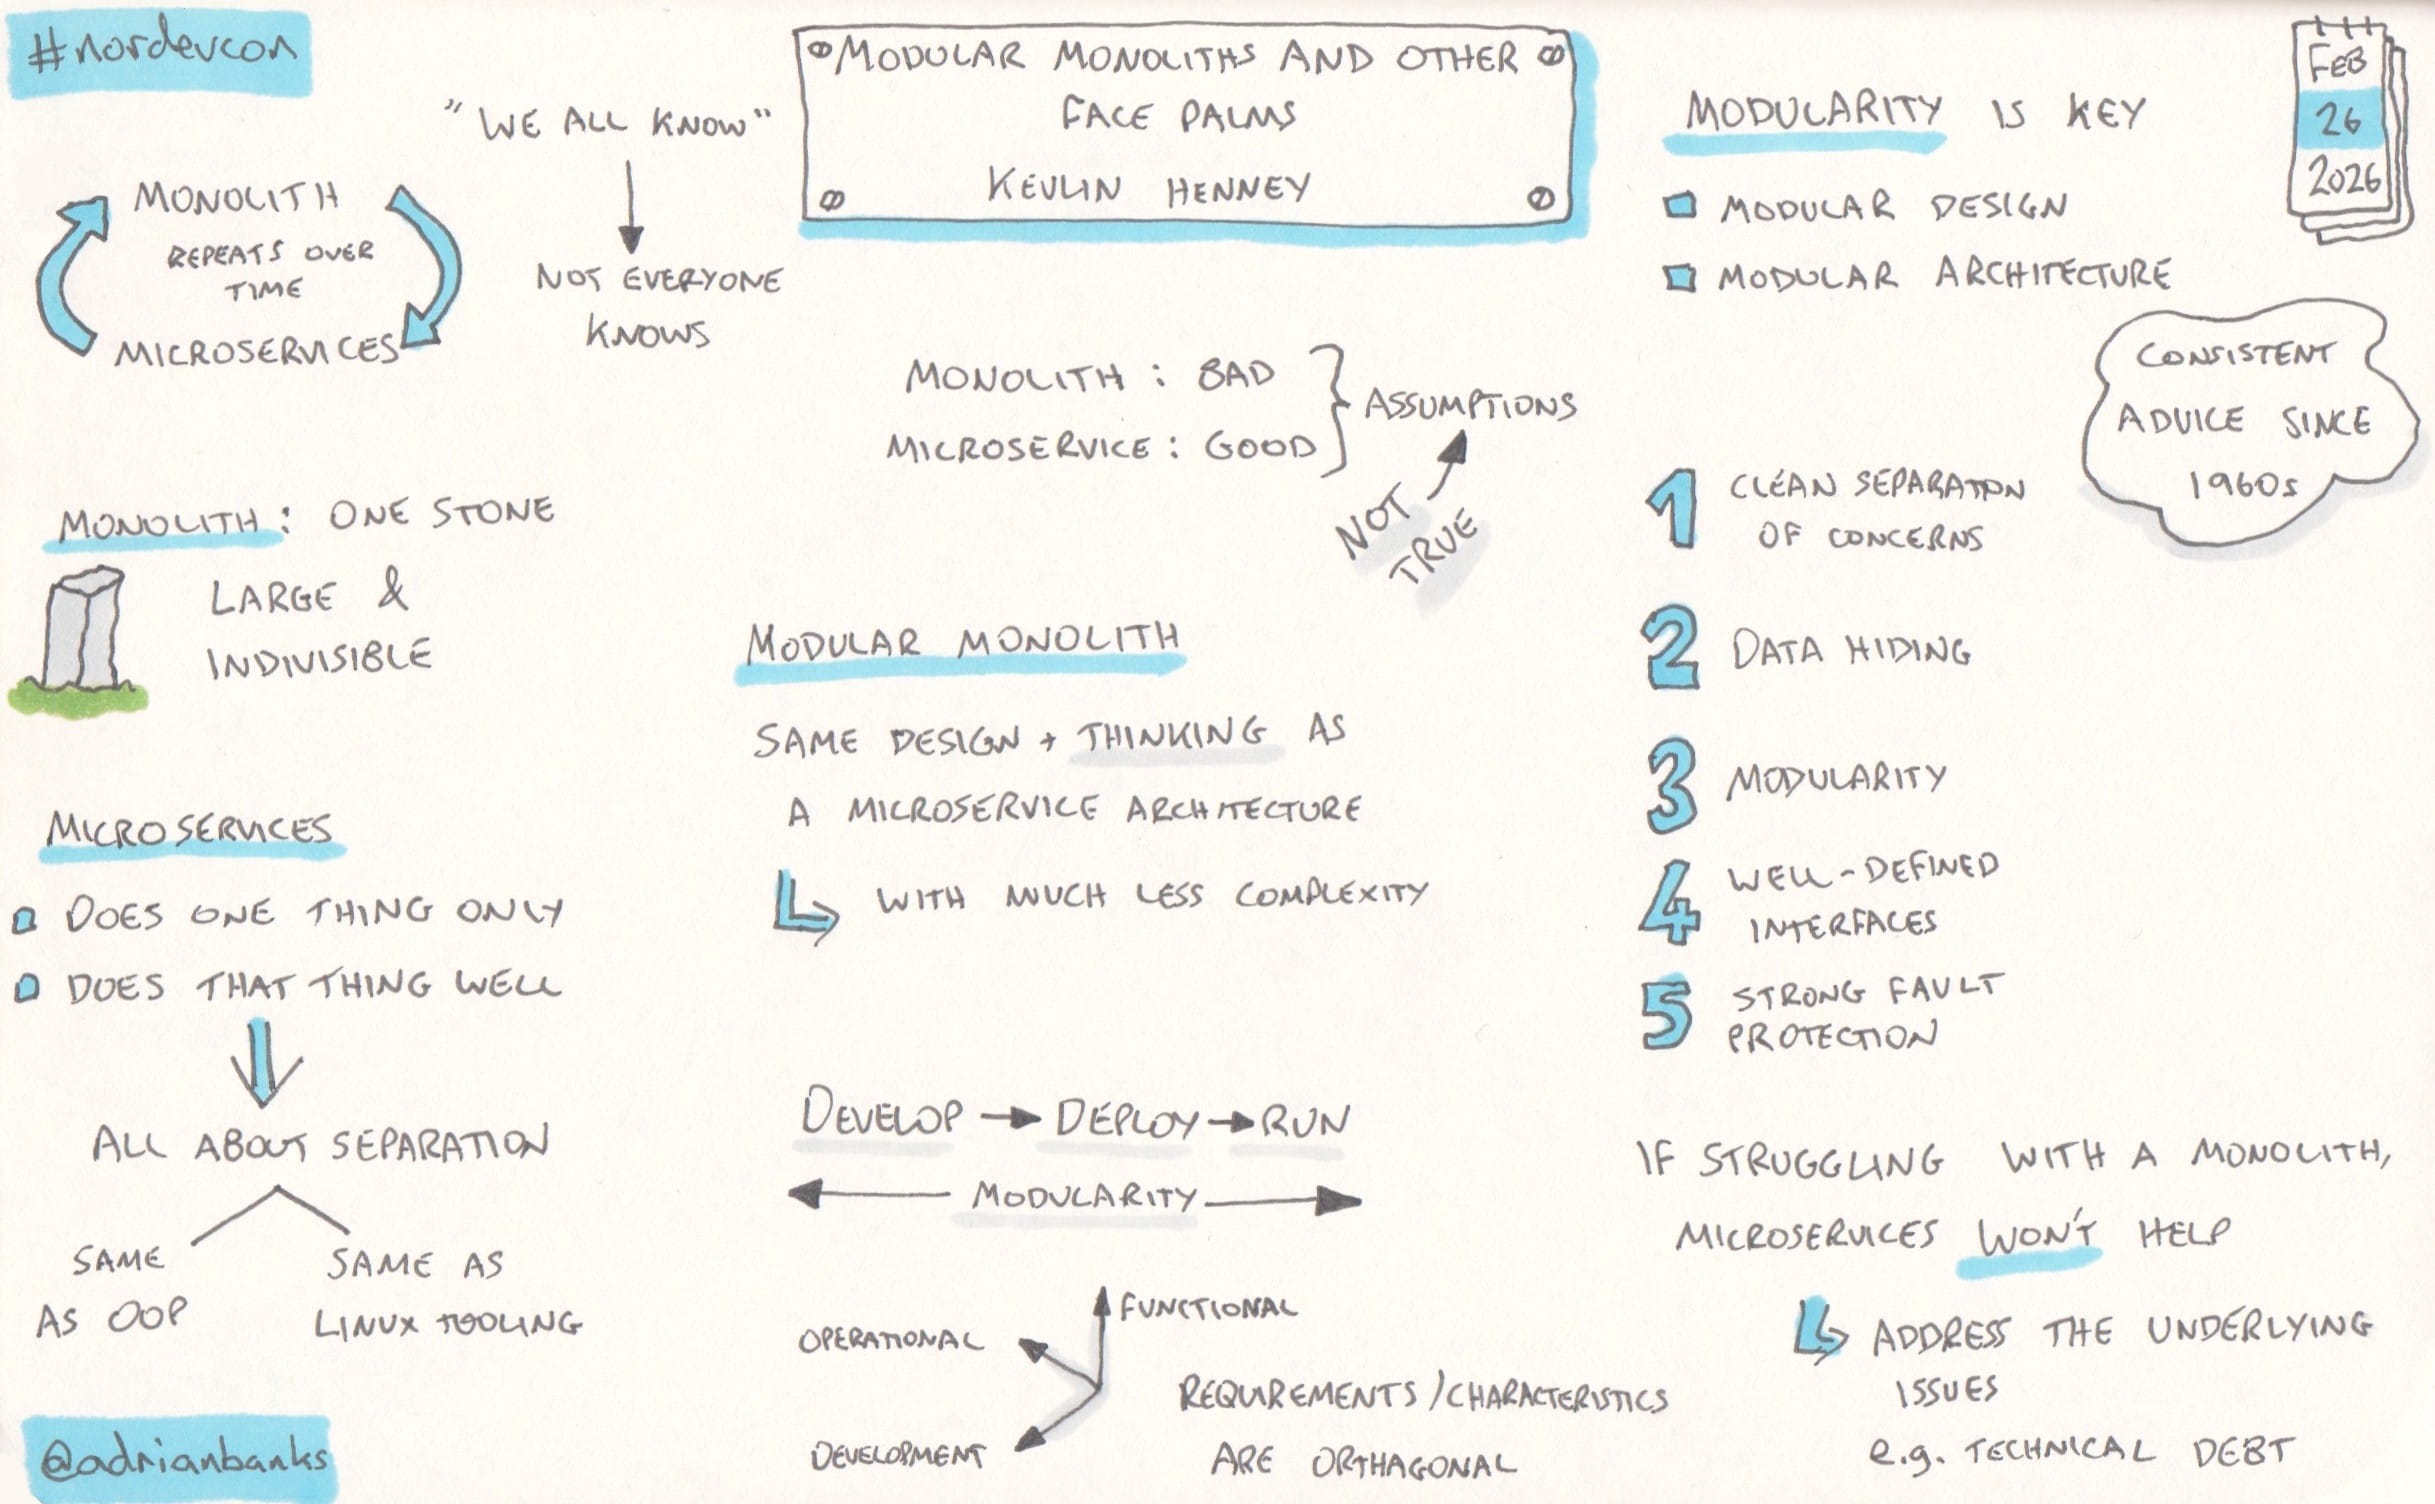 #nordevcon
MODULAR MONOLITHS AND OTHER
FACE PALMS
KEVLIN HENNEY
FEB
26
2026
"WE ALL KNOW"
NOT EVERYONE
KNOWS
MONOLITH
REPEATS OVER
TIME
MICROSERVICES
MONOLITH: ONE STONE
LARGE &
INDIVISIBLE
MICROSERVICES
DOES ONE THING ONLY
DOES THAT THING WELL
ALL ABOUT SEPARATION
SAME
AS OOP
SAME AS
LINUX TOOLING
@adrianbanks
MONOLITH : BAD
MICROSERVICE : GOOD
ASSUMPTIONS
NOT
TRUE
MODULAR MONOLITH
SAME DESIGN + THINKING AS
A MICROSERVICE ARCHITECTURE
WITH MUCH LESS COMPLEXITY
DEVELOP DEPLOY RUN
MODULARITY
FUNCTIONAL
OPERATIONAL
DEVELOPMENT
REQUIREMENTS/CHARACTERISTICS
ARE ORTHAGONAL
MODULARITY IS KEY
MODULAR DESIGN
MODULAR ARCHITECTURE
CONSISTENT
ADVICE SINCE
1960s
1 CLEAN SEPARATION
OF CONCERNS
2 DATA HIDING
3 MODULARITY
4 WELL-DEFINED
INTERFACES
5 STRONG FAULT
PROTECTION
IF STRUGGLING WITH A MONOLITH,
MICROSERVICES WON'T HELP
ADDRESS THE UNDERLYING
ISSUES
e.g. TECHNICAL DEBT